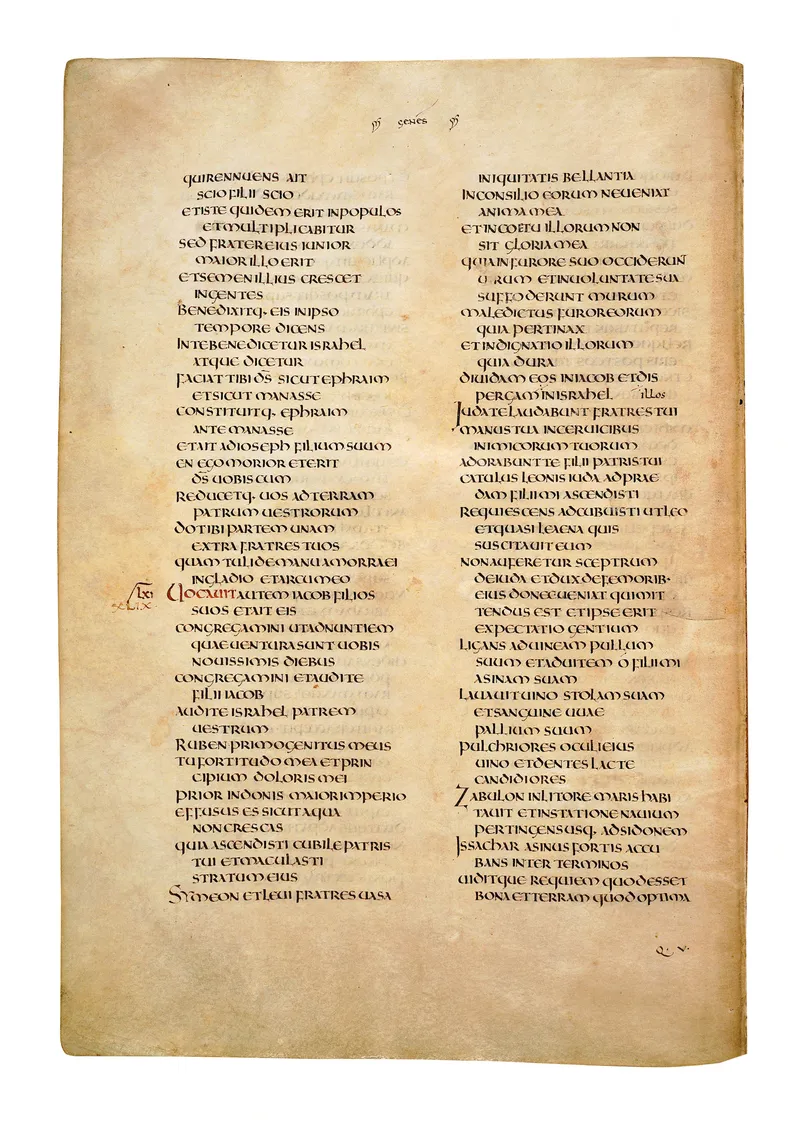 genes
QUIRENNUENS AIT
SCIO FILII SCIO
ETISTE QUIDEM ERIT INPOPULOS
ETMULTIPLICABITUR
SED FRATER EIUS IUNIOR
MAIOR ILLO ERIT
ETSEMEN ILLIUS CRESCET
INGENTES
BENEDIXITQ· EIS INIPSO
TEMPORE DICENS
INTEBENEDICETUR ISRAHEL
ATQUE DICETUR
FACIAT TIBI D̄S SICUT EPHRAIM
ETSICUT MANASSE
CONSTITUITQ· EPHRAIM
ANTE MANASSE
ETAIT ADIOSEPH FILIUM SUUM
EN EGO MORIOR ETERIT
D̄S UOBISCUM
REDUCETQ· UOS ADTERRAM
PATRUM UESTRORUM
DOTIBI PARTEM UNAM
EXTRA FRATRES TUOS
QUAM TULI DEMANU AMORRAEI
INGLADIO ETARCU MEO
LXI UOCAUIT AUTEM IACOB FILIOS
XLIX SUOS ETAIT EIS
CONGREGAMINI UTADNUNTIEM
QUAE UENTURA SUNT UOBIS
NOUISSIMIS DIEBUS
CONGREGAMINI ETAUDITE
FILII IACOB
AUDITE ISRAHEL PATREM
UESTRUM
RUBEN PRIMOGENITUS MEUS
TU FORTITUDO MEA ET PRIN
CIPIUM DOLORIS MEI
PRIOR INDONIS MAIOR IMPERIO
EFFUSUS ES SICUT AQUA
NON CRESCAS
QUIA ASCENDISTI CUBILE PATRIS
TUI ETMACULASTI
STRATUM EIUS
SYMEON ET LEUI FRATRES UASA
INIQUITATIS BELLANTIA
INCONSILIO EORUM NEUENIAT
ANIMA MEA
ETINCOETU ILLORUM NON
SIT GLORIA MEA
QUIA INFURORE SUO OCCIDERUNT
UIRUM ETINUOLUNTATE SUA
SUFFODERUNT MURUM
MALEDICTUS FUROR EORUM
QUIA PERTINAX
ETINDIGNATIO ILLORUM
QUIA DURA
DIUIDAM EOS INIACOB ETDIS
PERGAM INISRAHEL illos
IUDA TE LAUDABUNT FRATRES TUI
MANUS TUA INCERUICIBUS
INIMICORUM TUORUM
ADORABUNT TE FILII PATRIS TUI
CATULUS LEONIS IUDA ADPRAE
DAM FILI MI ASCENDISTI
REQUIESCENS ADCUBUISTI UT LEO
ETQUASI LEAENA QUIS
SUSCITAUIT EUM
NON AUFERETUR SCEPTRUM
DEIUDA ET DUX DEFEMORIB·
EIUS DONEC UENIAT QUI MIT
TENDUS EST ET IPSE ERIT
EXPECTATIO GENTIUM
LIGANS ADUINEAM PULLUM
SUUM ETADUITEM O FILI MI
ASINAM SUAM
LAUAUIT UINO STOLAM SUAM
ETSANGUINE UUAE
PALLIUM SUUM
PULCHRIORES OCULI EIUS
UINO ETDENTES LACTE
CANDIDIORES
ZABULON INLITORE MARIS HABI
TAUIT ETINSTATIONE NAUIUM
PERTINGENS USQ· ADSIDONEM
ISSACHAR ASINUS FORTIS ACCU
BANS INTER TERMINOS
UIDITQUE REQUIEM QUOD ESSET
BONA ET TERRAM QUOD OPTIMA
Q· V·